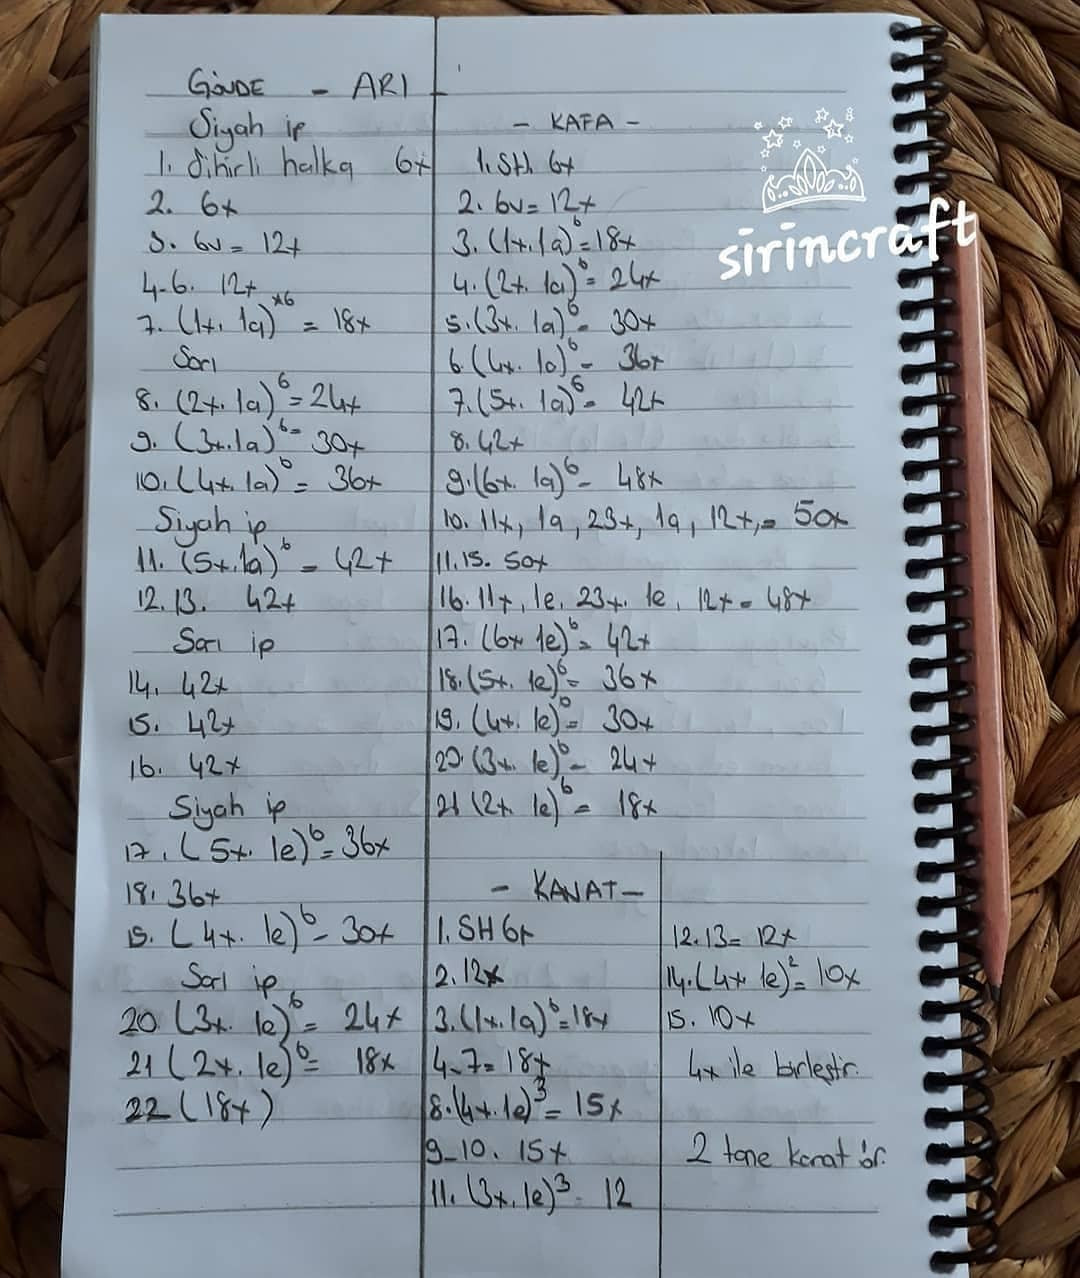 GÖVDE - ARI
Siyah ip
1. Sihirli halka 6x
2. 6x
3. 6v = 12x
4-6. 12x
7. (1x. 1a)*6 = 18x
Sarı
8. (2x. 1a)6 = 24x
9. (3x. 1a)6 = 30x
10. (4x. 1a)6 = 36x
Siyah ip
11. (5x. 1a)6 = 42x
12. 13. 42x
Sarı ip
14. 42x
15. 42x
16. 42x
Siyah ip
17. (5x. 1e)6 = 36x
18. 36x
19. (4x. 1e)6 - 30x
Sarı ip
20 (3x. 1e)6 = 24x
21 (2x. 1e)6 = 18x
22 (18x)
- KAFA -
1. SH. 6x
2. 6v = 12x
3. (1x. 1a)6 = 18x
4. (2x. 1a)6 = 24x
5. (3x. 1a)6 - 30x
6. (4x. 1a)6 - 36x
7. (5x. 1a)6 - 42x
8. 42x
9. (6x. 1a)6 - 48x
10. 11x, 1a, 23x, 1a, 12x, = 50x
11. 15. 50x
16. 11x, 1e, 23x. 1e, 12x = 48x
17. (6x 1e)6 = 42x
18. (5x. 1e)6 = 36x
19. (4x. 1e)6 = 30x
20. (3x. 1e)6 - 24x
21 (2x 1e)6 = 18x
- KANAT -
1. SH 6x
2. 12x
3. (1x. 1a)6 = 18x
4-7 = 18x
8. (4x. 1e)3 = 15x
9-10. 15x
11. (3x. 1e)3 - 12
12. 13 = 12x
14. (4x 1e)2 = 10x
15. 10x
4x ile birleştir.
2 tane kanat ör.
sirincraft